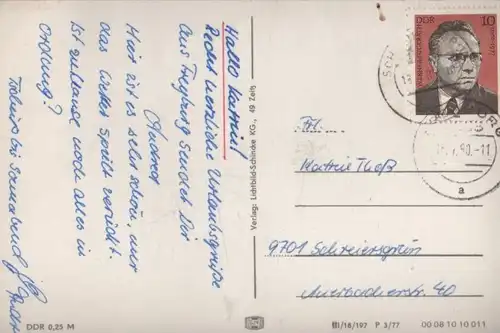 Hallo Katrin!
Recht herzliche Urlaubsgrüße
aus Freyburg sendet Dir
Andrea
Hier ist es sehr schön, nur
das Wetter spielt verrückt.
Ist zuhause noch alles in
Ordnung?
Tschüß bis Sonnabend
Verlag: Lichtbild-Schincke KG., 49 Zeitz
DDR 10
Frl.
Katrin Tloß
9701 Schreiersgrün
Auerbacherstr. 40
a
DDR 0,25 M
III/18/197 P 3/77 00 08 10 10 011